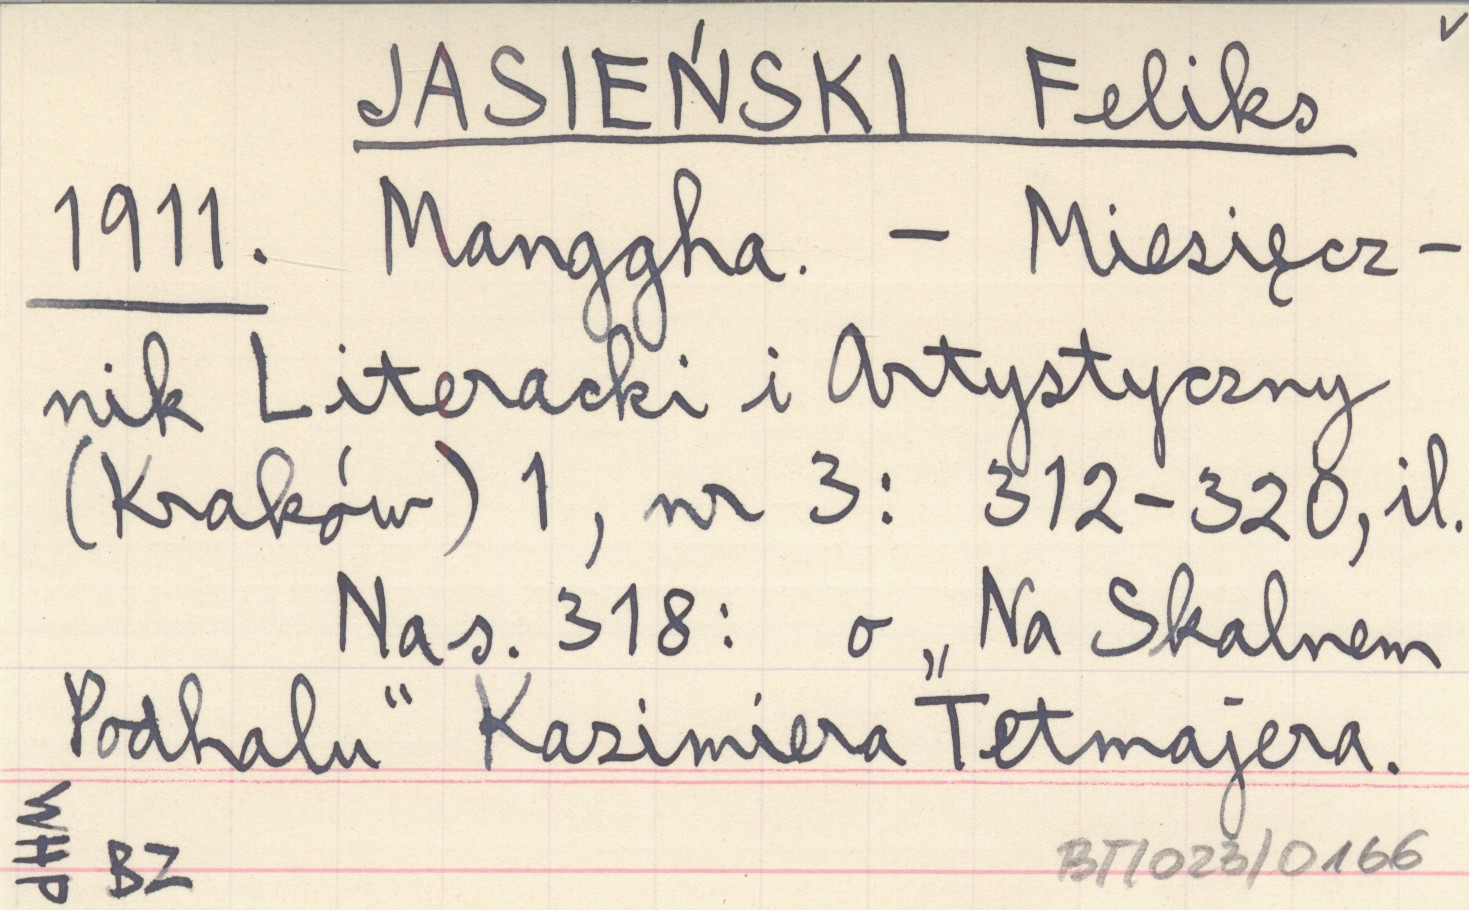 JASIEŃSKI Feliks
1911. Manggha. – Miesięcz–
nik Literacki i Artystyczny
(Kraków) 1, nr 3: 312–320, il.
Na s. 318: o „Na Skalnem
Podhalu“ Kazimiera Tetmajera.
WHP
BZ
BT/023/0166